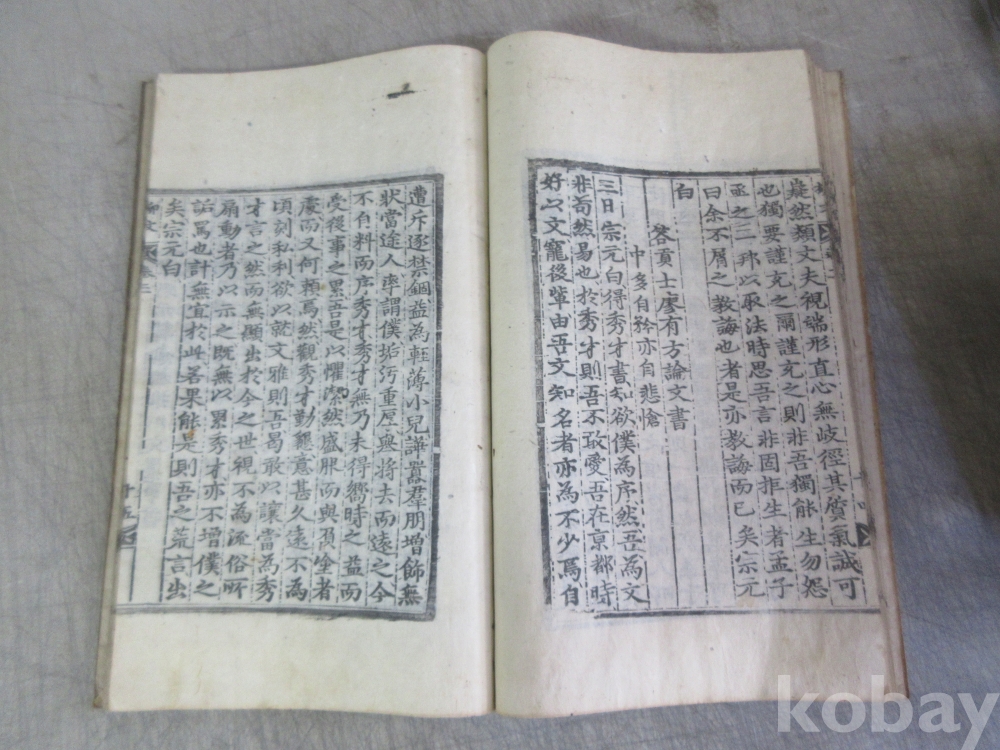 巍然類丈夫視端形直心無歧徑其質氣誠可
也獨要謹充之爾謹充之則非吾獨能生勿怨
亟之二邦以取法時思吾言非固拒生者孟子
曰余不屑之教誨也者是亦教誨而已矣宗元
白
答貢士廖有方論文書
中多自矜亦自悲愴
三日宗元白得秀才書知欲僕為序然吾為文
非苟然易也於秀才則吾不敢愛吾在京都時
好以文寵後輩由吾文知名者亦為不少焉自
遭斥逐禁錮益為輕薄小兒譁囂羣朋增飾無
狀當途人率謂僕垢汚重厚舉將去而遠之今
不自料而序秀才秀才無乃未得嚮時之益而
受後事之累吾是以懼潔然盛服而與負塗者
處而又何賴焉然觀秀才勤懇意甚久遠不為
頃刻私利欲以就文雅則吾曷敢以讓當為秀
才言之然而無顯出於今之世視不為流俗所
扇動者乃以示之既無以累秀才亦不增僕之
詬罵也計無宜於此若果能是則吾之荒言出
矣宗元白
十五
kobay